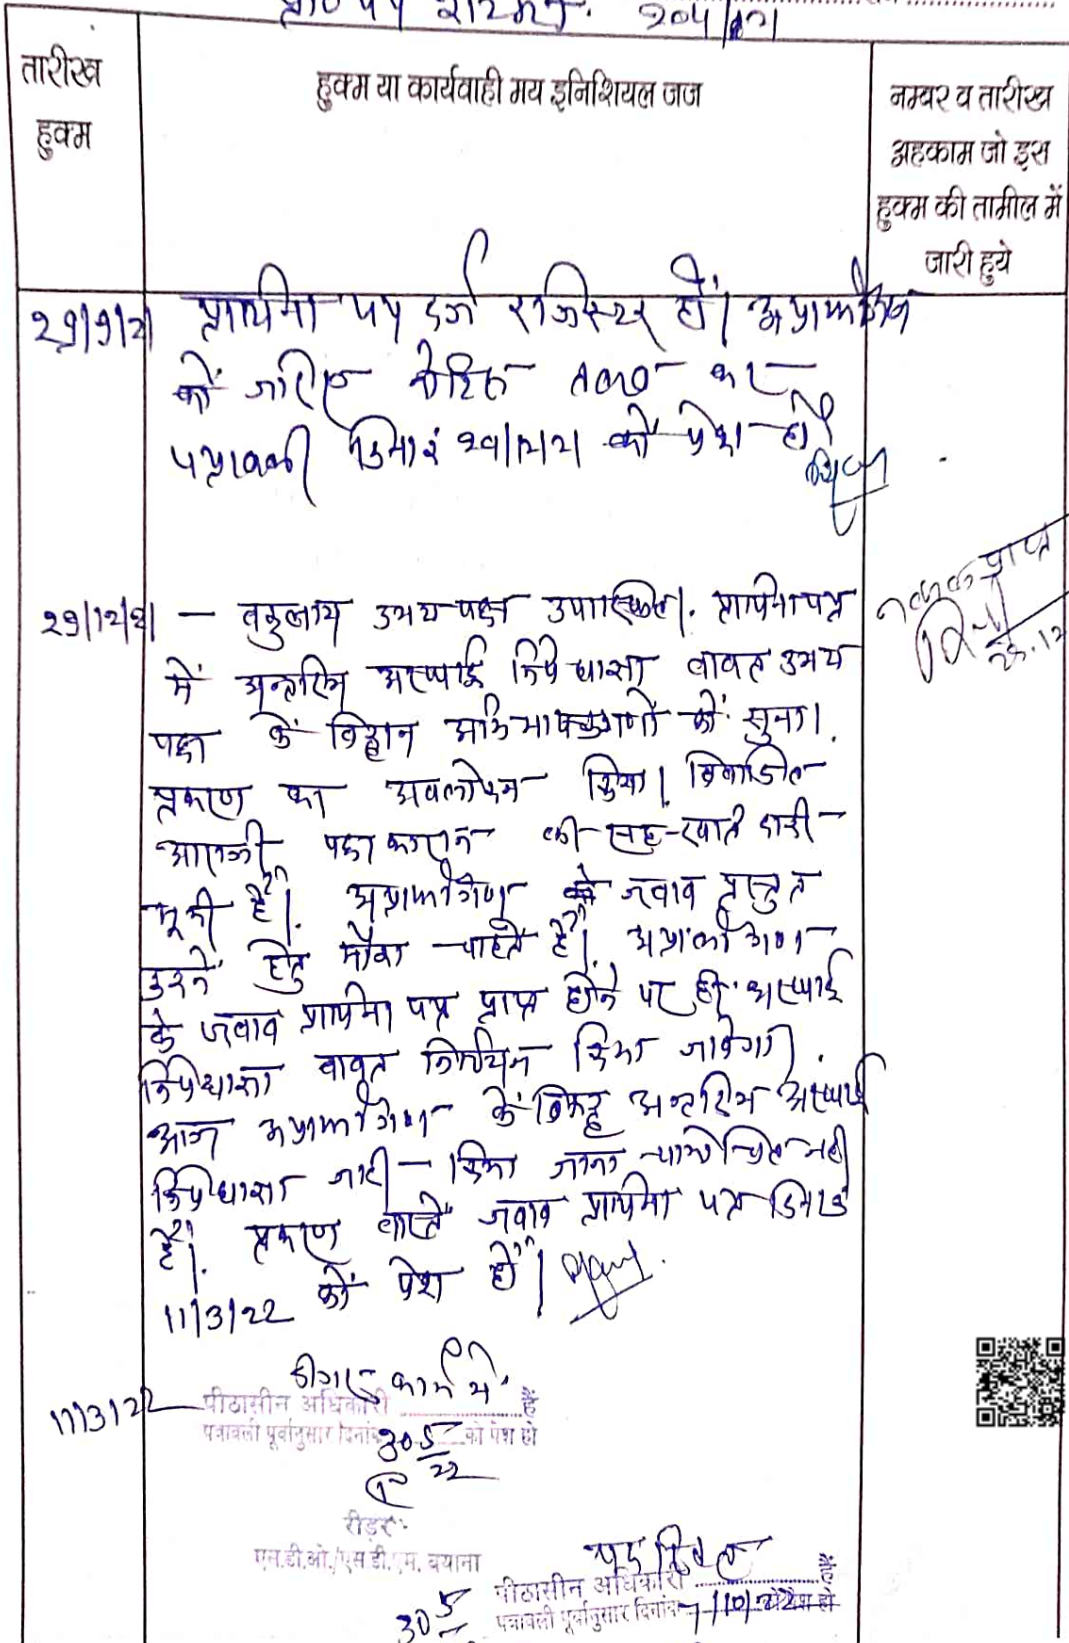 प्रा० पत्र 204/21
तारीख
हुक्म
हुक्म या कार्यवाही मय इनिशियल जज
नम्बर व तारीख
अहकाम जो इस
हुक्म की तामील में
जारी हुये
29/9/21 प्रार्थना पत्र दर्ज रजिस्टर हो। अप्रार्थीगण
को जरिए नोटिस तलब कर
पत्रावली दिनांक 29/12/21 को पेश हो
29/12/21 — वकुलाय उभय पक्ष उपस्थित। प्रार्थना पत्र
में अन्तरिम अस्थाई निषेधाज्ञा बाबत उभय
पक्ष के विद्वान अभिभाषकगणों को सुना।
प्रकरण का अवलोकन किया। विवादित
आराजी पक्षकारान की सह-खातेदारी
भूमी है। अप्रार्थीगण जवाब प्रस्तुत
करने हेतु मौका चाहते हैं। अप्रार्थीगण
के जवाब प्रार्थना पत्र प्राप्त होने पर ही अस्थाई
निषेधाज्ञा बाबत किया जावेगा।
आज अप्रार्थीगण के विरूद्ध अन्तरिम अस्थाई
निषेधाज्ञा जारी किया जाना न्यायोचित नहीं
है। प्रकरण वास्ते जवाब प्रार्थना पत्र दिनांक
11/3/22 को पेश हो।
नकल प्राप्त
11/3/22 पीठासीन अधिकारी ............ हैं
पत्रावली पूर्वानुसार दिनांक 30 5/22 को पेश हो
रीडर
एन.डी.ओ./एस.डी.एम. बयाना
30 5
पीठासीन अधिकारी ............ हैं
पत्रावली पूर्वानुसार दिनांक 7/10/22 को पेश हो